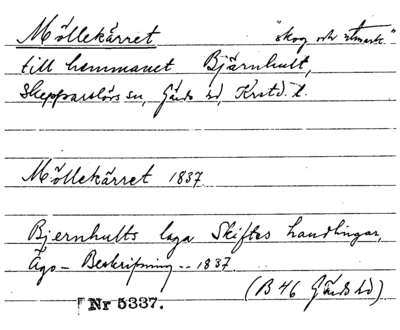 Möllekärret "skog och utmark."
till hemmanet Bjärnhult,
Skepparslövs sn, Gärds hd, Krstd. l.
Möllekärret 1837
Bjernhults laga Skiftes handlingar,
Ägo-Beskrifning.. 1837.
(B 46 Gärds hd)
Nr 5337.